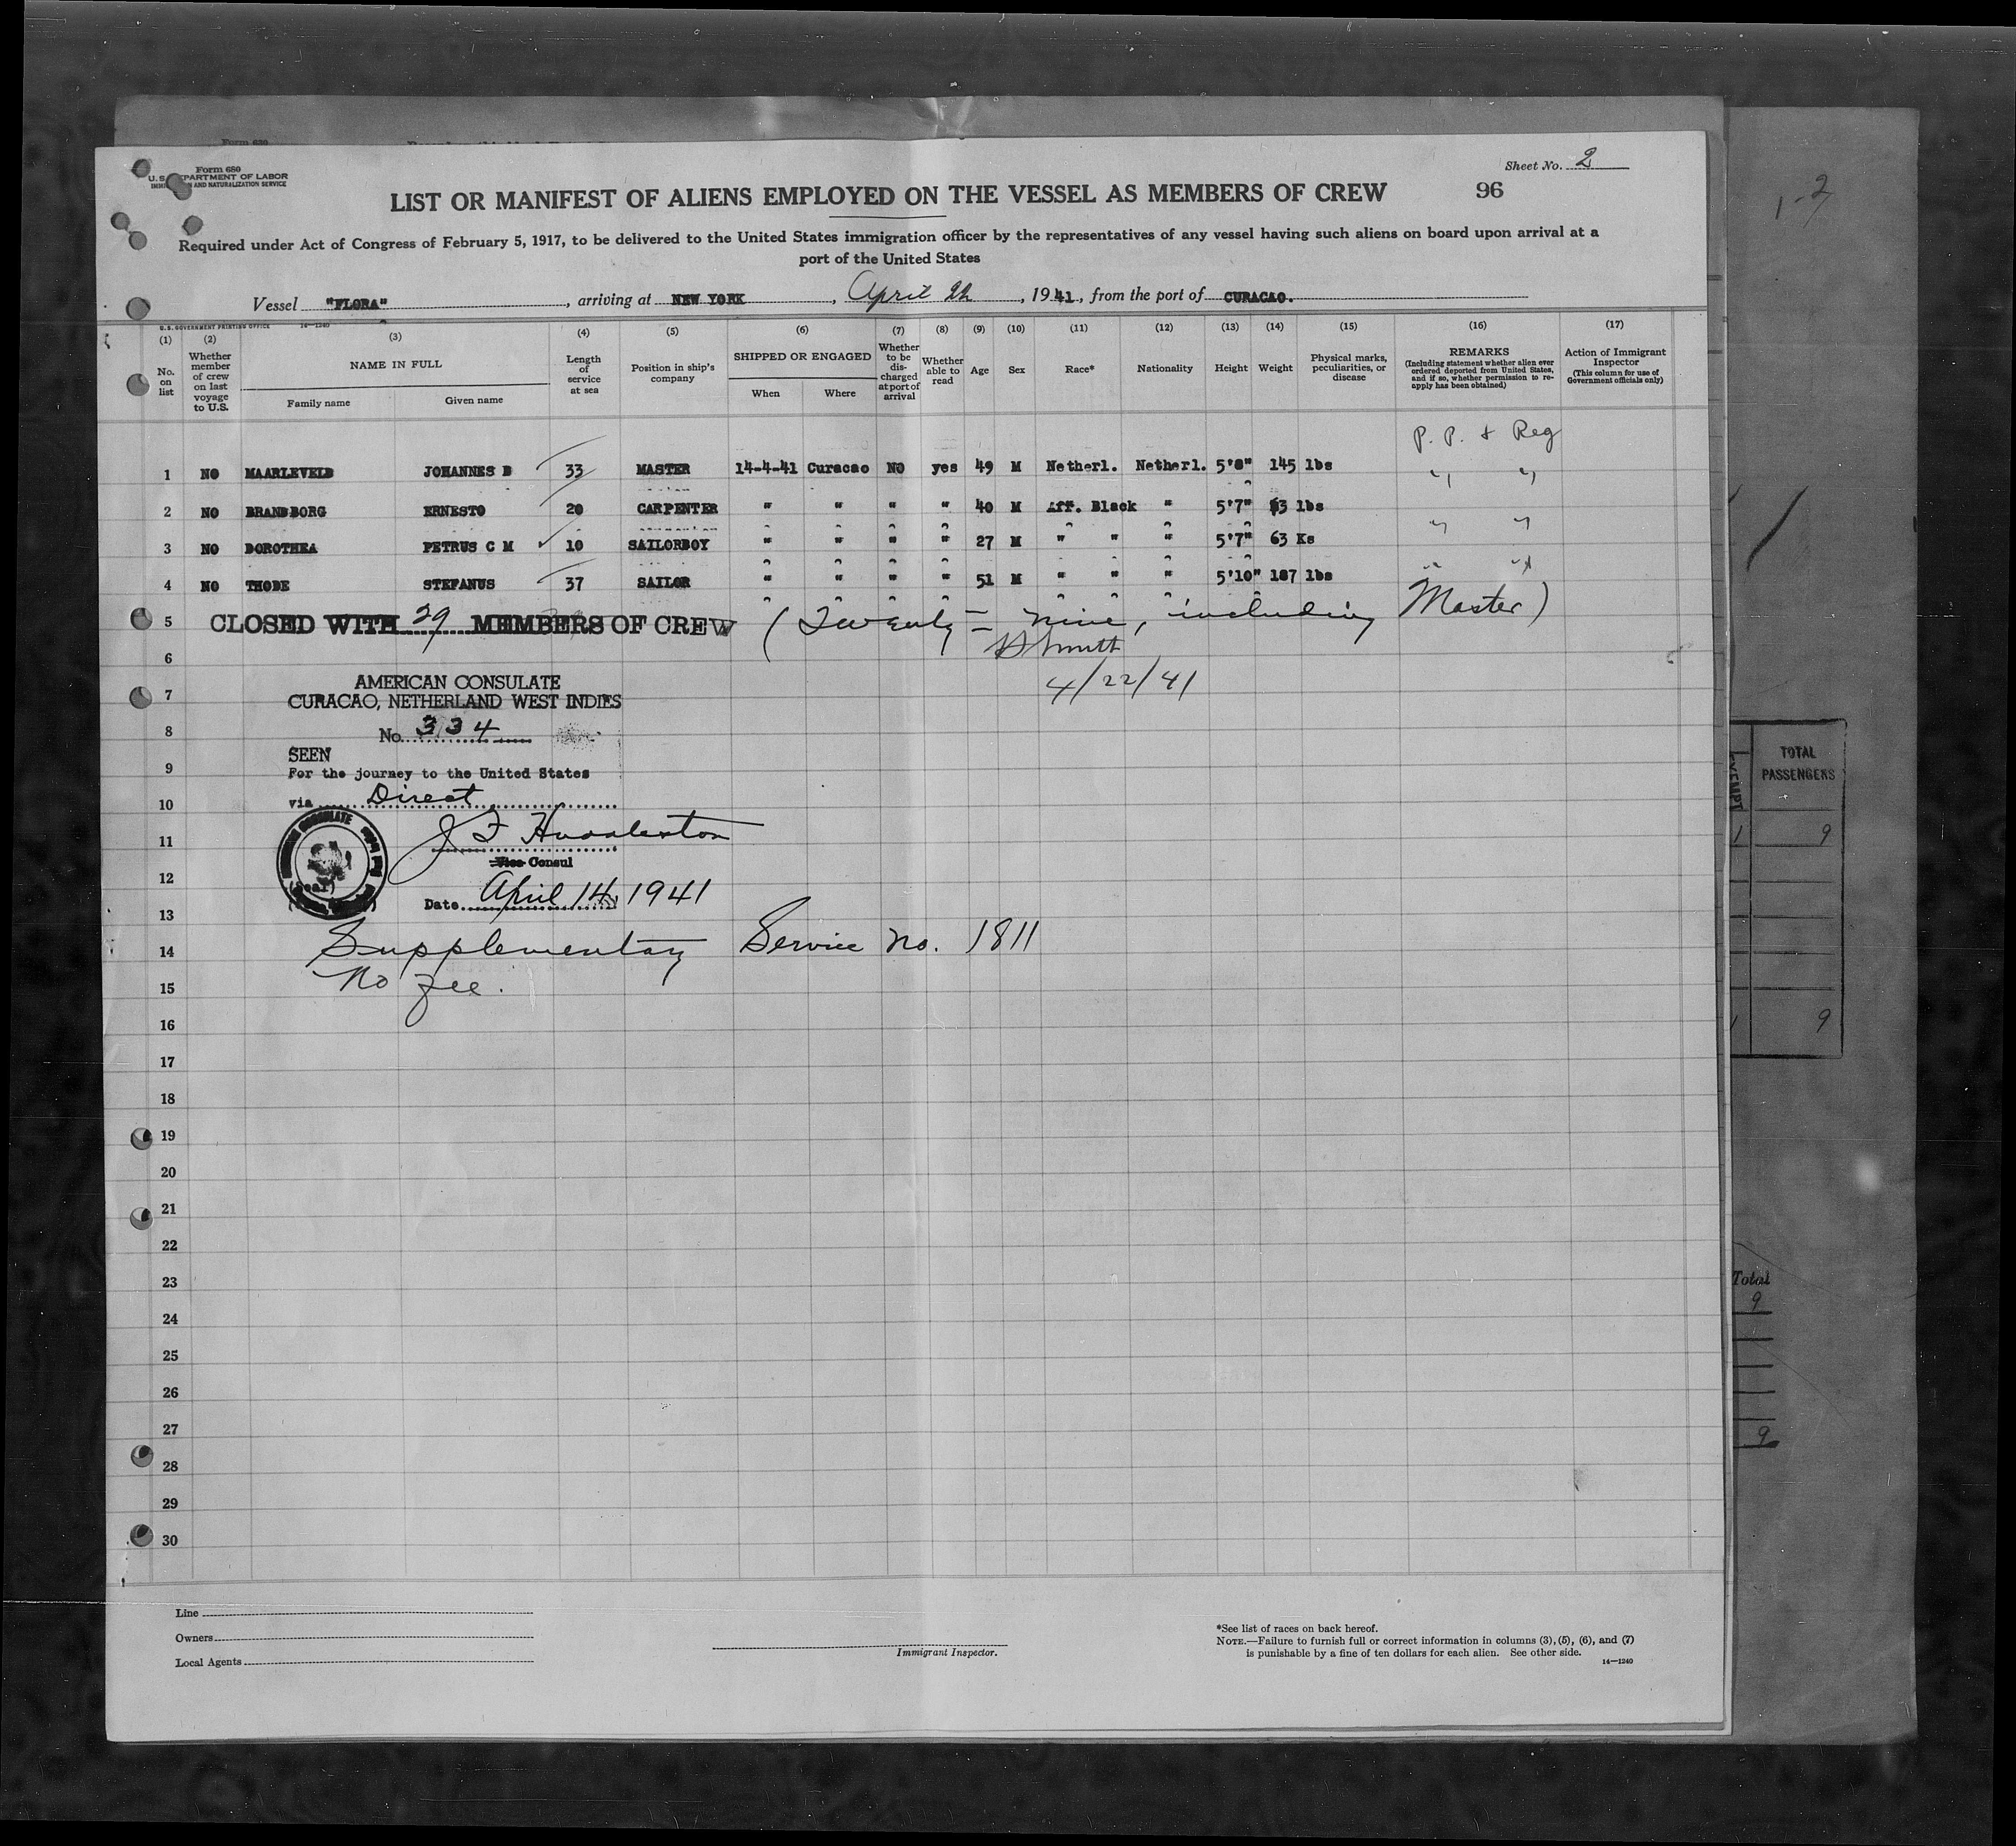 Form 680
U.S. DEPARTMENT OF LABOR
IMMIGRATION AND NATURALIZATION SERVICE
Sheet No. 2
LIST OR MANIFEST OF ALIENS EMPLOYED ON THE VESSEL AS MEMBERS OF CREW
96
Required under Act of Congress of February 5, 1917, to be delivered to the United States immigration officer by the representatives of any vessel having such aliens on board upon arrival at a
port of the United States
Vessel "FLORA", arriving at NEW YORK, April 22, 1941, from the port of CURACAO.
U.S. GOVERNMENT PRINTING OFFICE 14—1240
(1) No. on list
(2) Whether member of crew on last voyage to U.S.
(3) NAME IN FULL
Family name Given name
(4) Length of service at sea
(5) Position in ship's company
(6) SHIPPED OR ENGAGED
When Where
(7) Whether to be discharged at port of arrival
(8) Whether able to read
(9) Age
(10) Sex
(11) Race*
(12) Nationality
(13) Height
(14) Weight
(15) Physical marks, peculiarities, or disease
(16) REMARKS (Including statement whether alien ever ordered deported from United States, and if so, whether permission to reapply has been obtained)
(17) Action of Immigrant Inspector (This column for use of Government officials only)
P. P. & Reg
1 NO MAARLEVELD JOHANNES D 33 MASTER 14-4-41 Curacao NO yes 49 M Netherl. Netherl. 5'8" 145 lbs " "
2 NO BRANDBORG ERNESTO 20 CARPENTER " " " " 40 M Aff. Black " 5'7" 63 lbs " "
3 NO DOROTHEA PETRUS C M 10 SAILORBOY " " " " 27 M " " " 5'7" 63 Ks " "
4 NO THODE STEFANUS 37 SAILOR " " " " 51 M " " " 5'10" 187 lbs " "
5 CLOSED WITH 29 MEMBERS OF CREW (Twenty-nine, including Master)
6
4/22/41
AMERICAN CONSULATE
7 CURACAO, NETHERLAND WEST INDIES
8 No. 334
SEEN
9 For the journey to the United States
10 via Direct
11 J F Huddleston
12 Vice Consul
(Seal)
13 Date April 14, 1941
14 Supplementary Service No. 1811
15 No fee.
16
17
18
19
20
21
22
23
24
25
26
27
28
29
30
Line
Owners
Local Agents
Immigrant Inspector.
*See list of races on back hereof.
NOTE.—Failure to furnish full or correct information in columns (3), (5), (6), and (7)
is punishable by a fine of ten dollars for each alien. See other side.
14—1240
1-2
TOTAL
PASSENGERS
1 9
9
Total
9
9